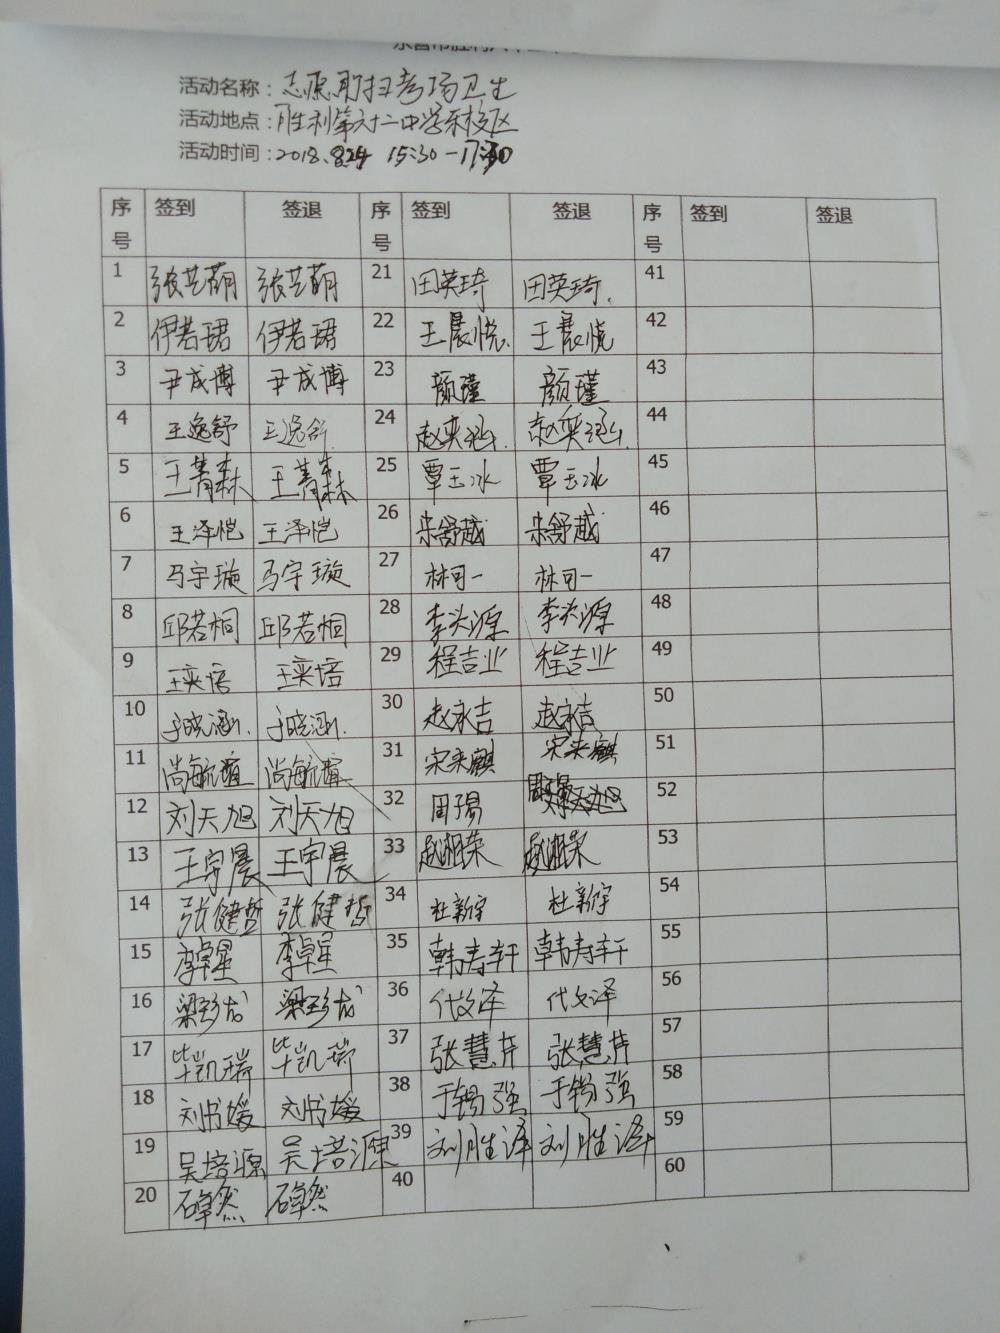 活动名称：志愿打扫考场卫生
活动地点：胜利第六十二中学东校区
活动时间：2018.8.24 15:30-17:30
序号 签到 签退 序号 签到 签退 序号 签到 签退
1 张艺萌 张艺萌 21 田英琦 田英琦. 41
2 伊若珺 伊若珺 22 王晨悦 王晨悦 42
3 尹成博 尹成博 23 颜瑾 颜瑾 43
4 王逸舒 王逸舒 24 赵奕涵 赵奕涵 44
5 王菁森 王菁森 25 覃玉冰 覃玉冰 45
6 王泽恺 王泽恺 26 宋舒越 宋舒越 46
7 马宇璇 马宇璇 27 林可一 林可一 47
8 邱若桐 邱若桐 28 李尖源 李尖源 48
9 王奕培 王奕培 29 程吉业 程吉业 49
10 于晓涵 于晓涵 30 赵永吉 赵永吉 50
11 尚毓 尚毓 31 宋来麒 宋来麒 51
12 刘天旭 刘天旭 32 周子易 52
13 王宇晨 王宇晨 33 赵湘荣 赵湘荣 53
14 张健哲 张健哲 34 杜新宇 杜新宇 54
15 李卓星 李卓星 35 韩寿轩 韩寿轩 55
16 梁珍龙 梁珍龙 36 代文泽 代文泽 56
17 毕凯瑞 毕凯瑞 37 张慧芹 张慧芹 57
18 刘书媛 刘书媛 38 于锡强 于锡强 58
19 吴培源 吴培源 39 刘胜泽 刘胜泽 59
20 石卓然 石卓然 40 60